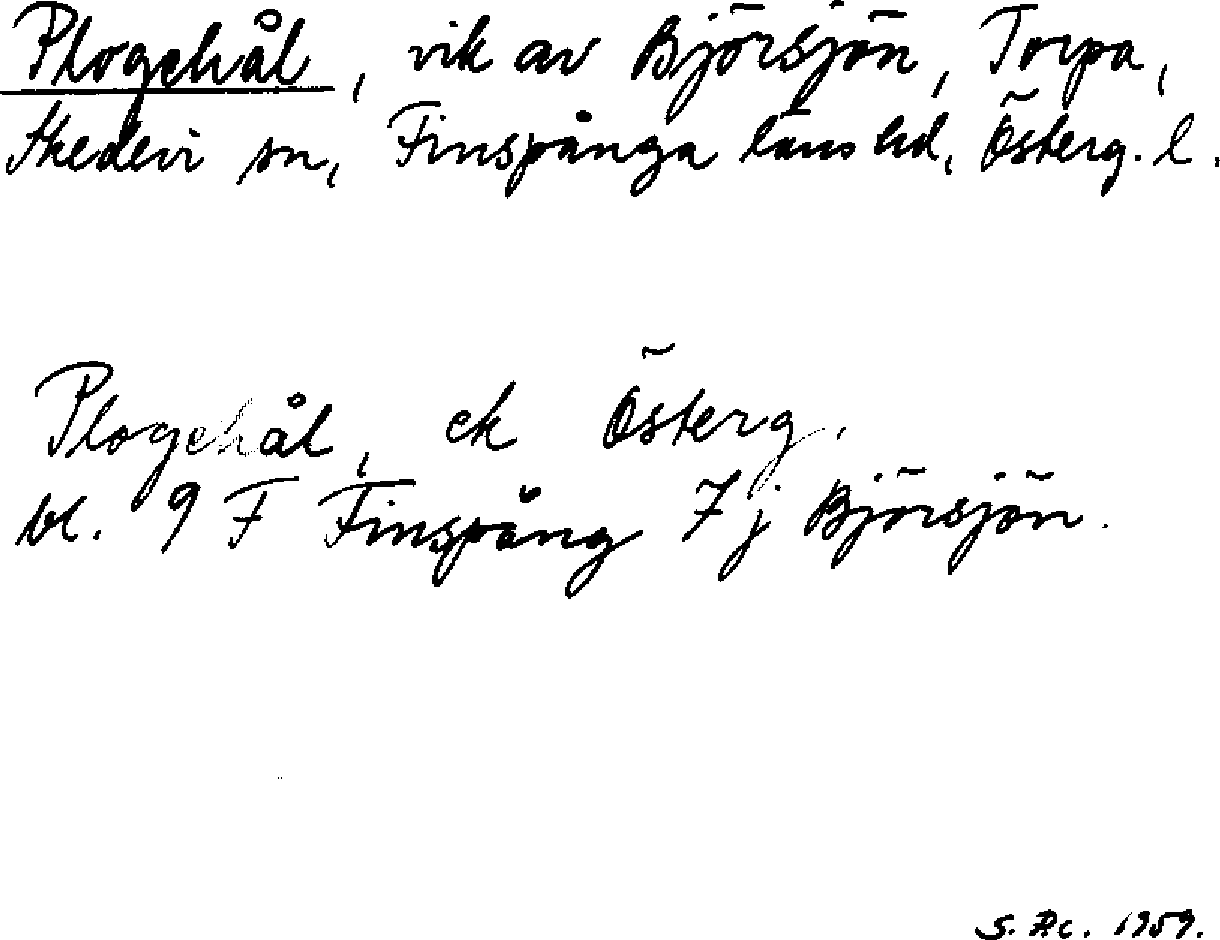 Plogehål, vik av Björsjön, Torpa,
Skedevi sn, Finspånga läns hd, Österg. l.
Plogehål, ek Österg.
bl. 9 F Finspång 7 j Björsjön.
S. Ac. 1959.